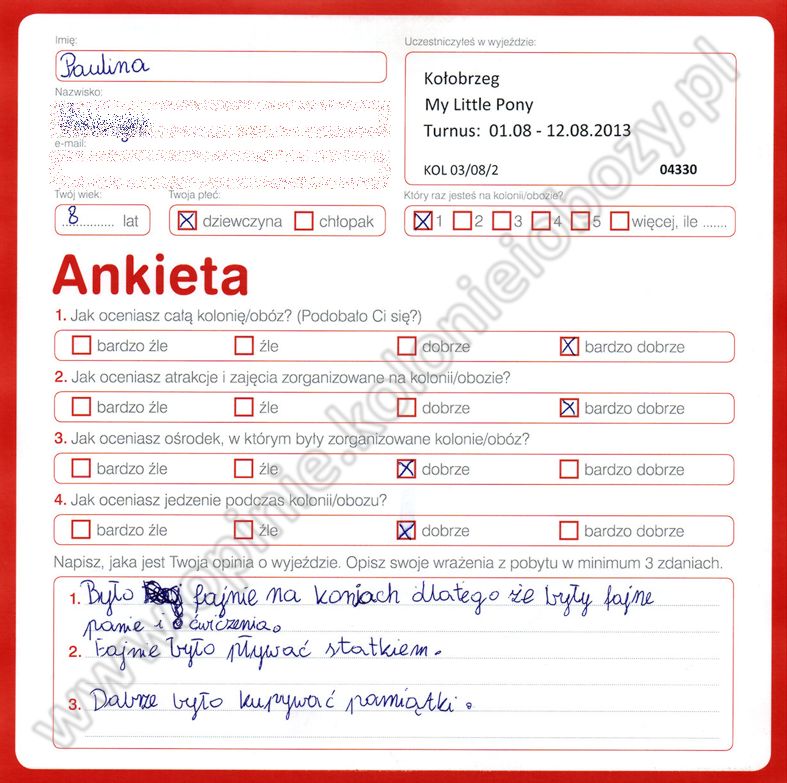 Imię:
Paulina
Uczestniczyłeś w wyjeździe:
Kołobrzeg
My Little Pony
Turnus: 01.08 - 12.08.2013
KOL 03/08/2 04330
Nazwisko:
e-mail:
Twój wiek:
8 lat
Twoja płeć:
dziewczyna chłopak
Który raz jesteś na kolonii/obozie?
1 2 3 4 5 więcej, ile .......
Ankieta
1. Jak oceniasz całą kolonię/obóz? (Podobało Ci się?)
bardzo źle źle dobrze bardzo dobrze
2. Jak oceniasz atrakcje i zajęcia zorganizowane na kolonii/obozie?
bardzo źle źle dobrze bardzo dobrze
3. Jak oceniasz ośrodek, w którym były zorganizowane kolonie/obóz?
bardzo źle źle dobrze bardzo dobrze
4. Jak oceniasz jedzenie podczas kolonii/obozu?
bardzo źle źle dobrze bardzo dobrze
Napisz, jaka jest Twoja opinia o wyjeździe. Opisz swoje wrażenia z pobytu w minimum 3 zdaniach.
1. Było fajnie na konjach dlatego że były fajne
panie i ćwiczenia.
2. Fajnie było pływać statkiem.
3. Dobrze było kupywać pamiątki.
www.opinie.kolonieiobozy.pl